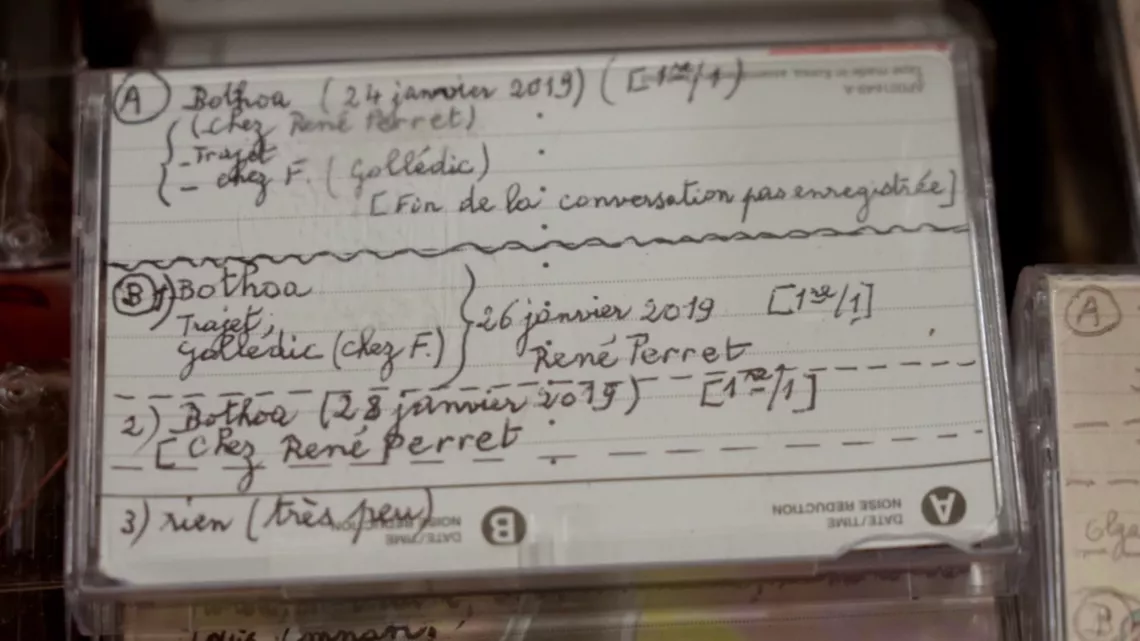 A Bothoa (24 janvier 2019) ([1re/1)
(chez René Perret)
- Trajet
- chez F. (Gollédic)
[Fin de la conversation pas enregistrée]
B 1) Bothoa
Trajet,
Gollédic (chez F.) } 26 janvier 2019 [1re/1]
René Perret
2) Bothoa (28 janvier 2019) [1re/1]
[chez René Perret
3) rien (très peu)
B DATE/TIME
NOISE REDUCTION
A DATE/TIME
NOISE REDUCTION
A
B